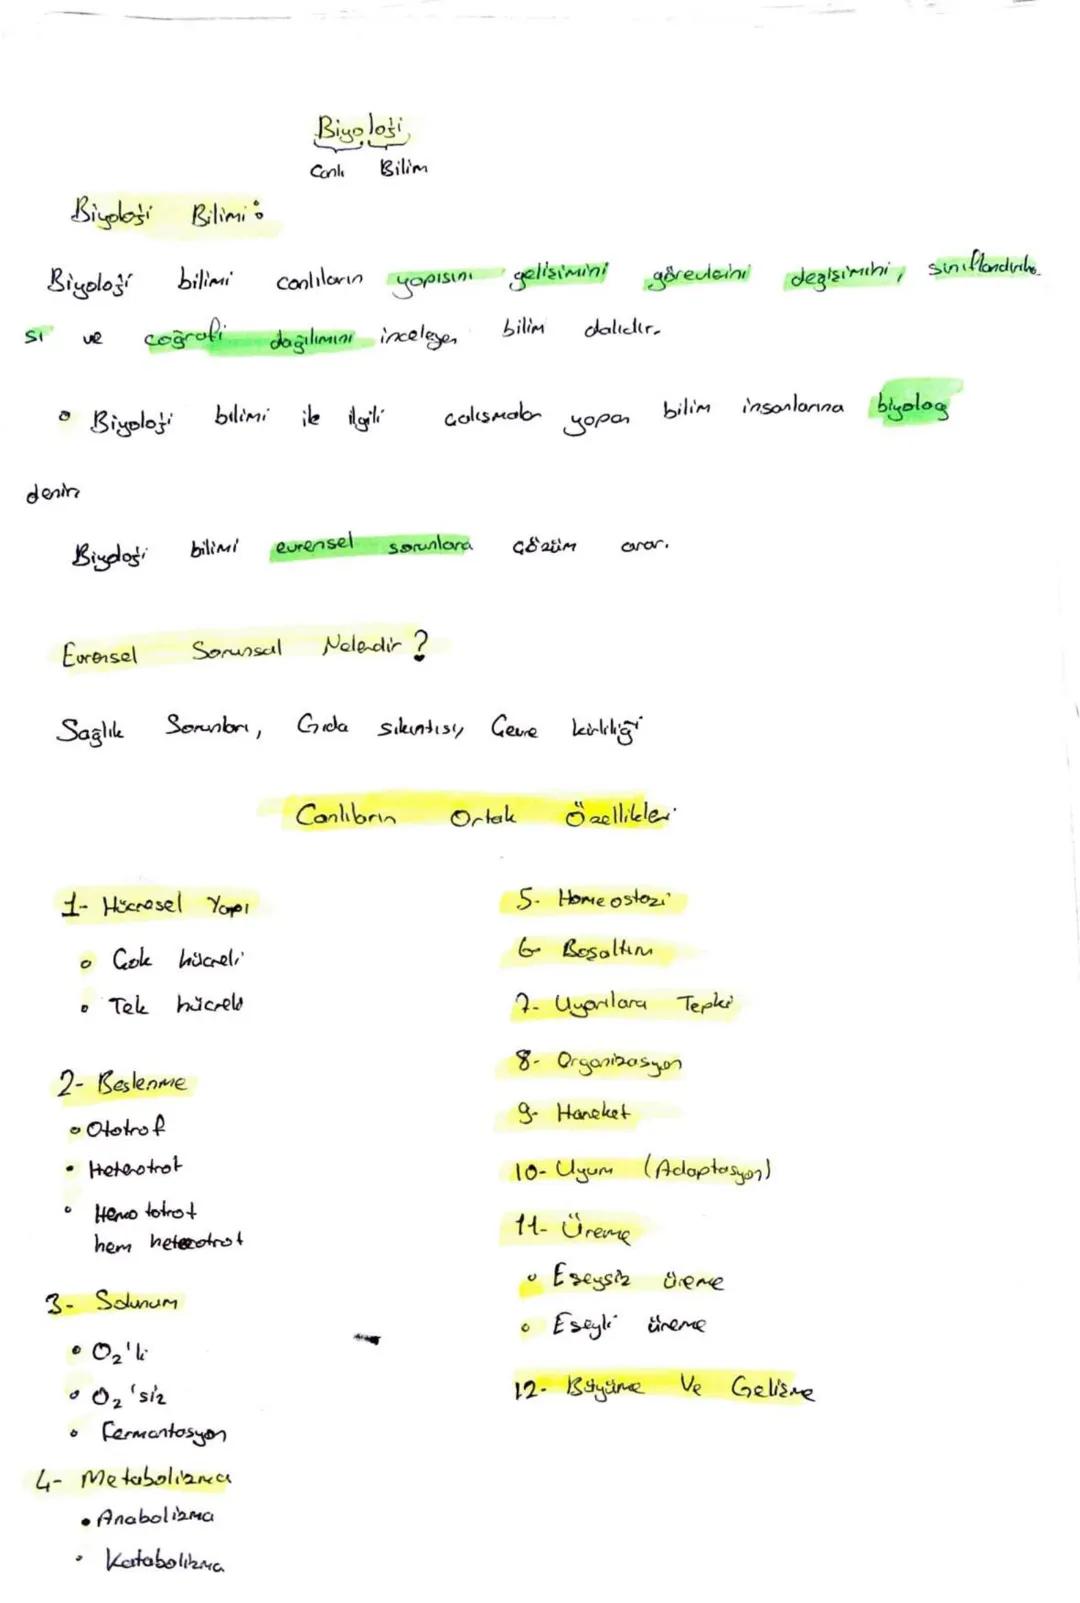 Biyoloji
Canlı Bilim
Biyoloji Bilimi:
Biyoloji bilimi canlıların yapısını gelişimini görevlerini değişimini, sınıflandırılma
sı ve coğrafi dağılımını inceleyen bilim dalıdır.
• Biyoloji bilimi ile ilgili çalışmalar yapan bilim insanlarına biyolog
denir
Biyoloji bilimi evrensel sorunlara çözüm arar.
Evrensel Sorunsal Nelerdir?
Sağlık Sorunları, Gıda sıkıntısı, Çevre kirliliği
Canlıların Ortak Özellikleri
1- Hücresel Yapı
• Çok hücreli
• Tek hücreli
2- Beslenme
• Ototrof
• Heterotrof
• Hem ototrof
hem heterotrof
3- Solunum
• O₂'li
• O₂'siz
• Fermantasyon
4- Metabolizma
• Anabolizma
• Katabolizma
5- Homeostazi
6- Boşaltım
7- Uyarılara Tepki
8- Organizasyon
9- Hareket
10- Uyum (Adaptasyon)
11- Üreme
• Eşeysiz üreme
• Eşeyli üreme
12- Büyüme Ve Gelişme